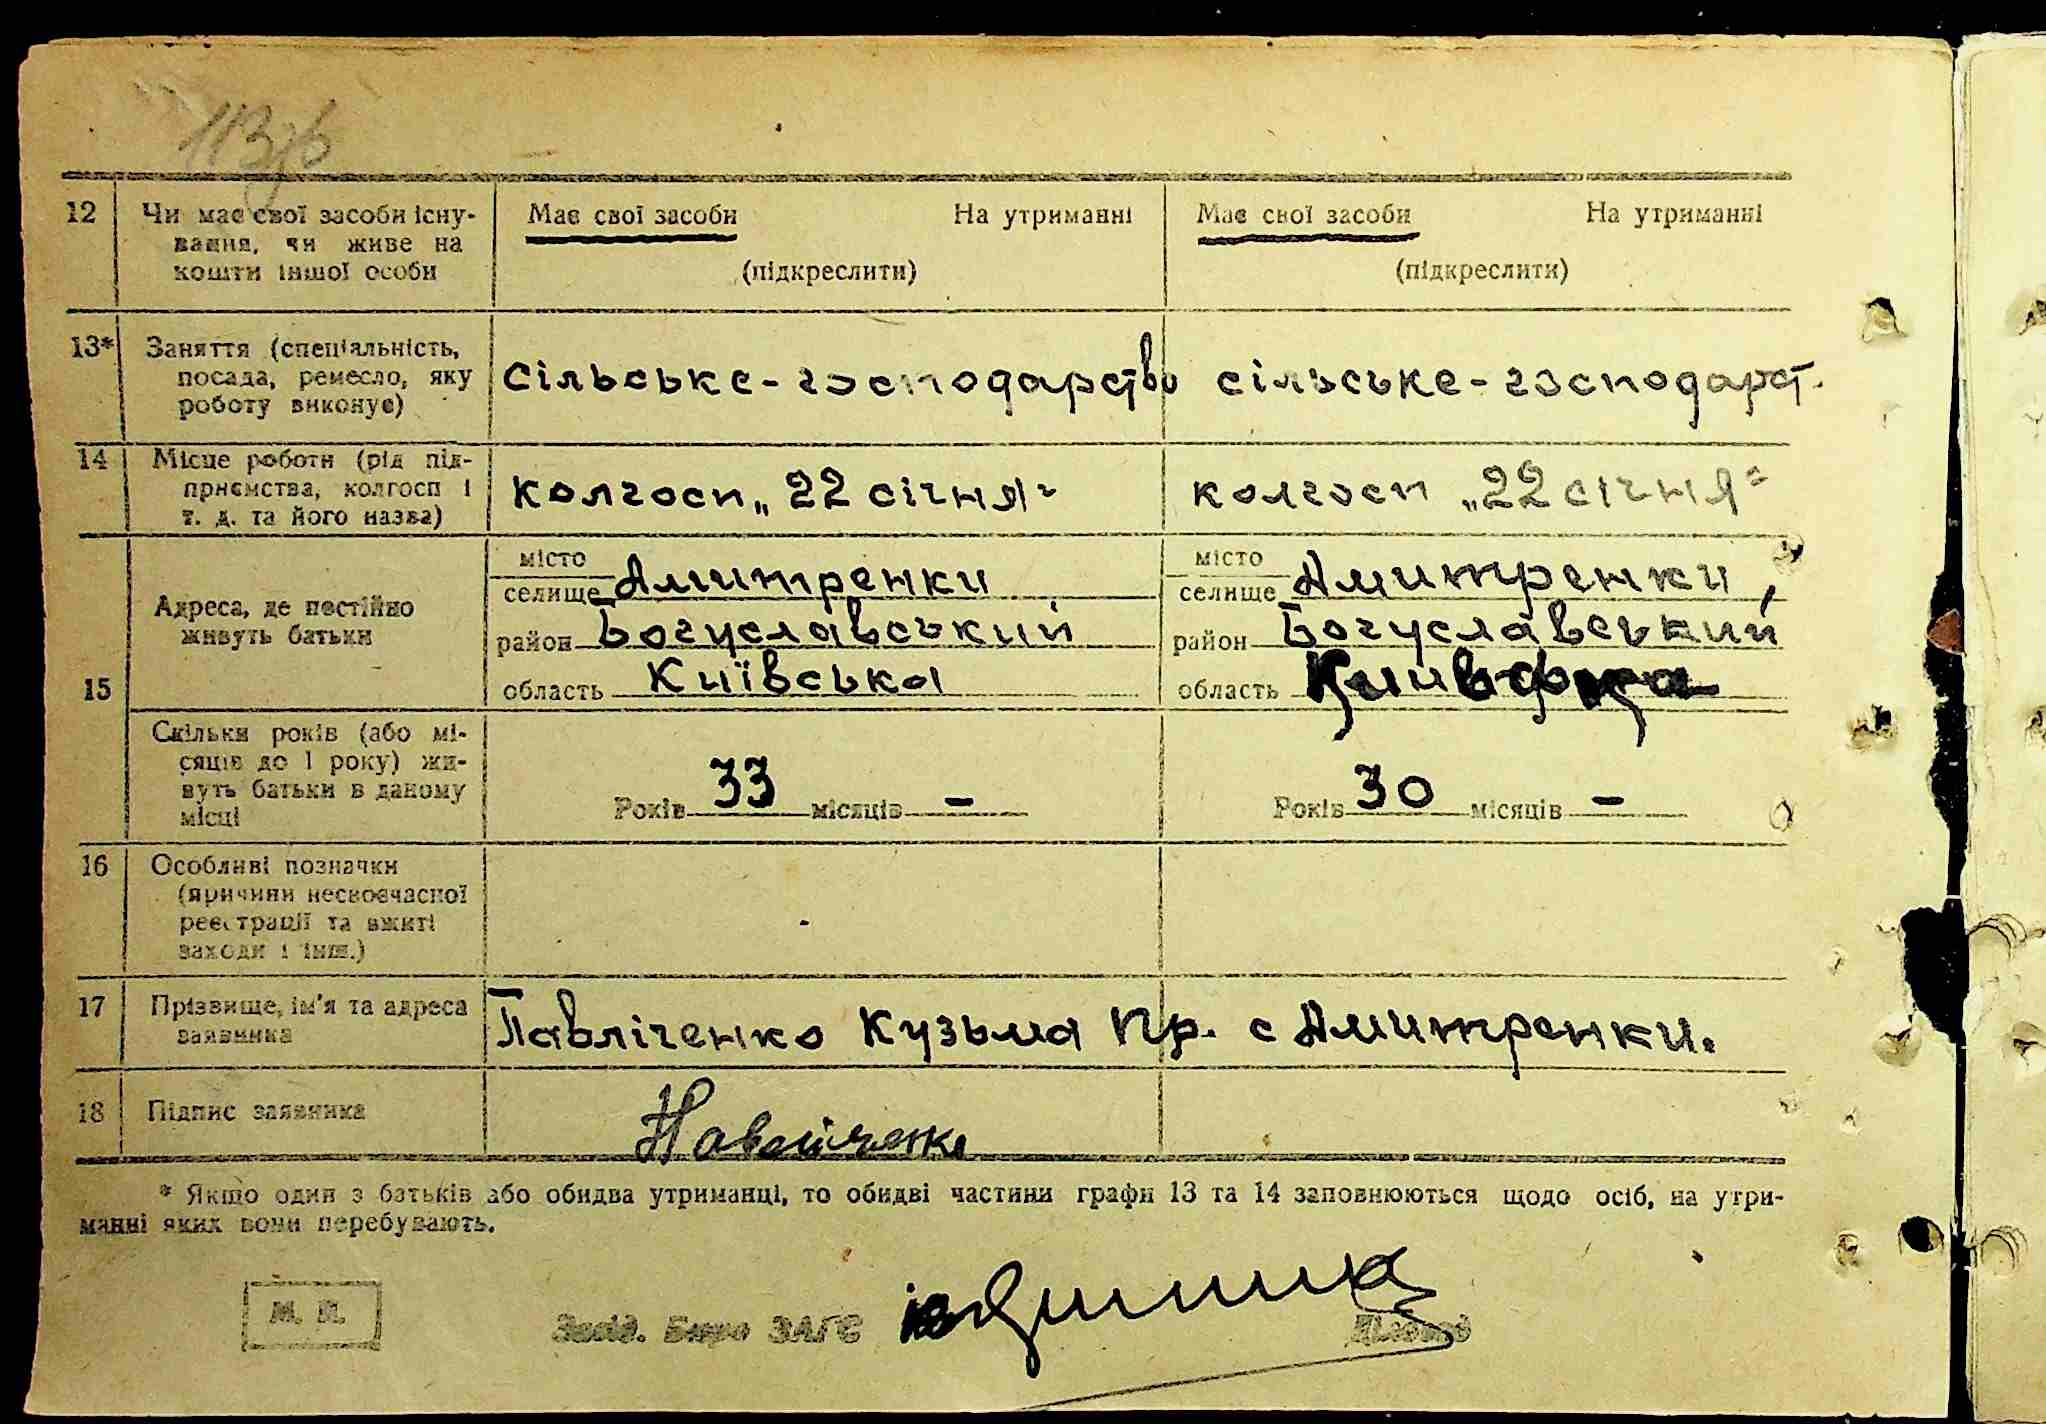 113зр
12 Чи має свої засоби існу- Має свої засоби На утриманні Має свої засоби На утриманні
вання, чи живе на
кошти іншої особи (підкреслити) (підкреслити)
13* Заняття (спеціальність,
посада, ремесло, яку сільське-господарство сільське-господарст.
роботу виконує)
14 Місце роботи (рід під-
приємства, колгосп і колгосп „22 січня" колгосп „22 січня"
т. д. та його назва)
місто місто
селище Дмитренки селище Дмитренки,
Адреса, де постійно
живуть батьки район Богуславський район Богуславський
15 область Київська область Київська
Скільки років (або мі-
сяців до 1 року) жи-
вуть батьки в даному Років 33 місяців - Років 30 місяців -
місці
16 Особливі позначки
(причини несвоєчасної
реєстрації та вжиті
заходи і інш.)
17 Прізвище, ім'я та адреса Павліченко Кузьма Пр. с Дмитренки.
заявника
18 Підпис заявника Павліченко
* Якщо один з батьків або обидва утриманці, то обидві частини графи 13 та 14 заповнюються щодо осіб, на утри-
манні яких вони перебувають.
М. П. Завід. Бюро ЗАГС